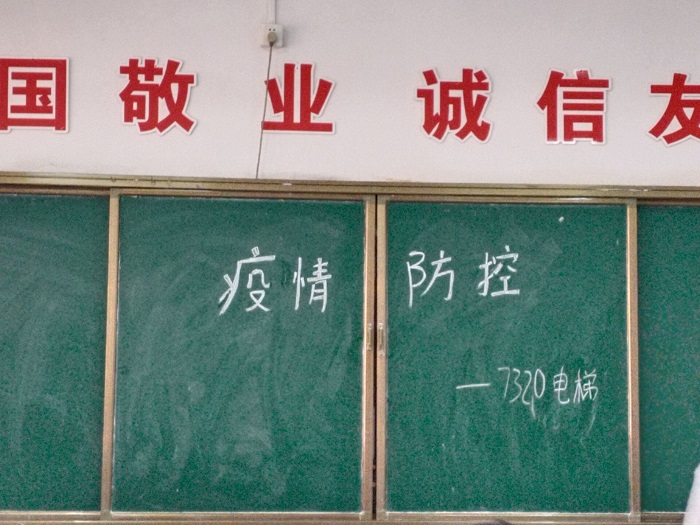 国 敬业 诚信 友
疫情 防控
— 7320电梯